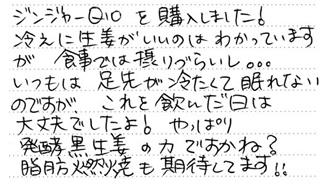 ジンジャーQ10 を購入しました!
冷えに生姜がいいのは わかっています
が 食事では摂りづらいし...
いつもは 足先が冷たくて 眠れない
のですが これを飲んだ日は
大丈夫でしたよ! やっぱり
発酵黒生姜 の力 ですかね?
脂肪燃焼も期待してます!!